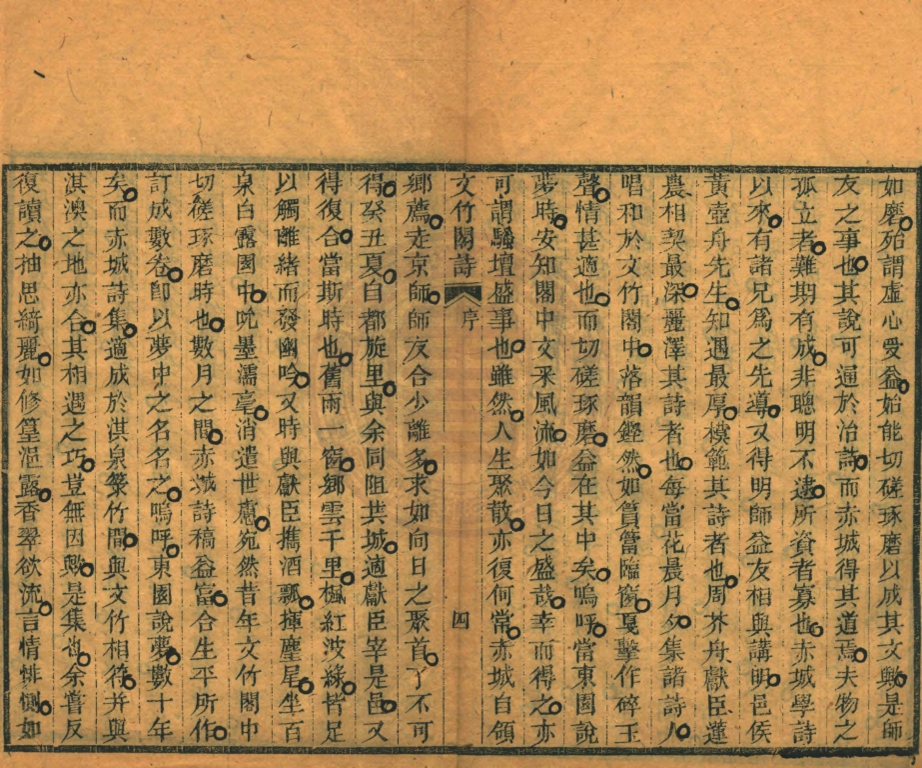 如磨殆謂虛心受益始能切磋琢磨以成其文歟是師
友之事也其說可通於治詩而赤城得其道焉夫物之
孤立者難期有成非聰明不逮所資者寡也赤城學詩
以來有諸兄爲之先導又得明師益友相與講明邑侯
黃壺舟先生知遇最厚模範其詩者也周芥舟獻臣蓮
農相契最深麗澤其詩者也每當花晨月夕集諸詩人
唱和於文竹閣中落韻鏗然如篔簹臨窗戛擊作碎玉
聲情甚適也而切磋琢磨益在其中矣嗚呼當東園說
夢時安知閣中文采風流如今日之盛哉幸而得之亦
可謂騷壇盛事也雖然人生聚散亦復何常赤城自領
文竹閣詩 序 四
鄉薦走京師師友合少離多求如向日之聚首了不可
得癸丑夏自都旋里與余同阻共城適獻臣宰是邑又
得復合當斯時也舊雨一窗鄉雲千里楓紅波綠皆足
以觸離緒而發幽吟又時與獻臣攜酒瓢揮麈尾坐百
泉白露園中吮墨濡毫消遣世慮宛然昔年文竹閣中
切磋琢磨時也數月之間赤城詩稿益富合生平所作
訂成數卷即以夢中之名名之嗚呼東園說夢數十年
矣而赤城詩集適成於淇泉箓竹間與文竹相符并與
淇澳之地亦合其相遇之巧豈無因歟是集也余嘗反
復讀之抽思綺麗如修篁浥露香翠欲流言情悱惻如